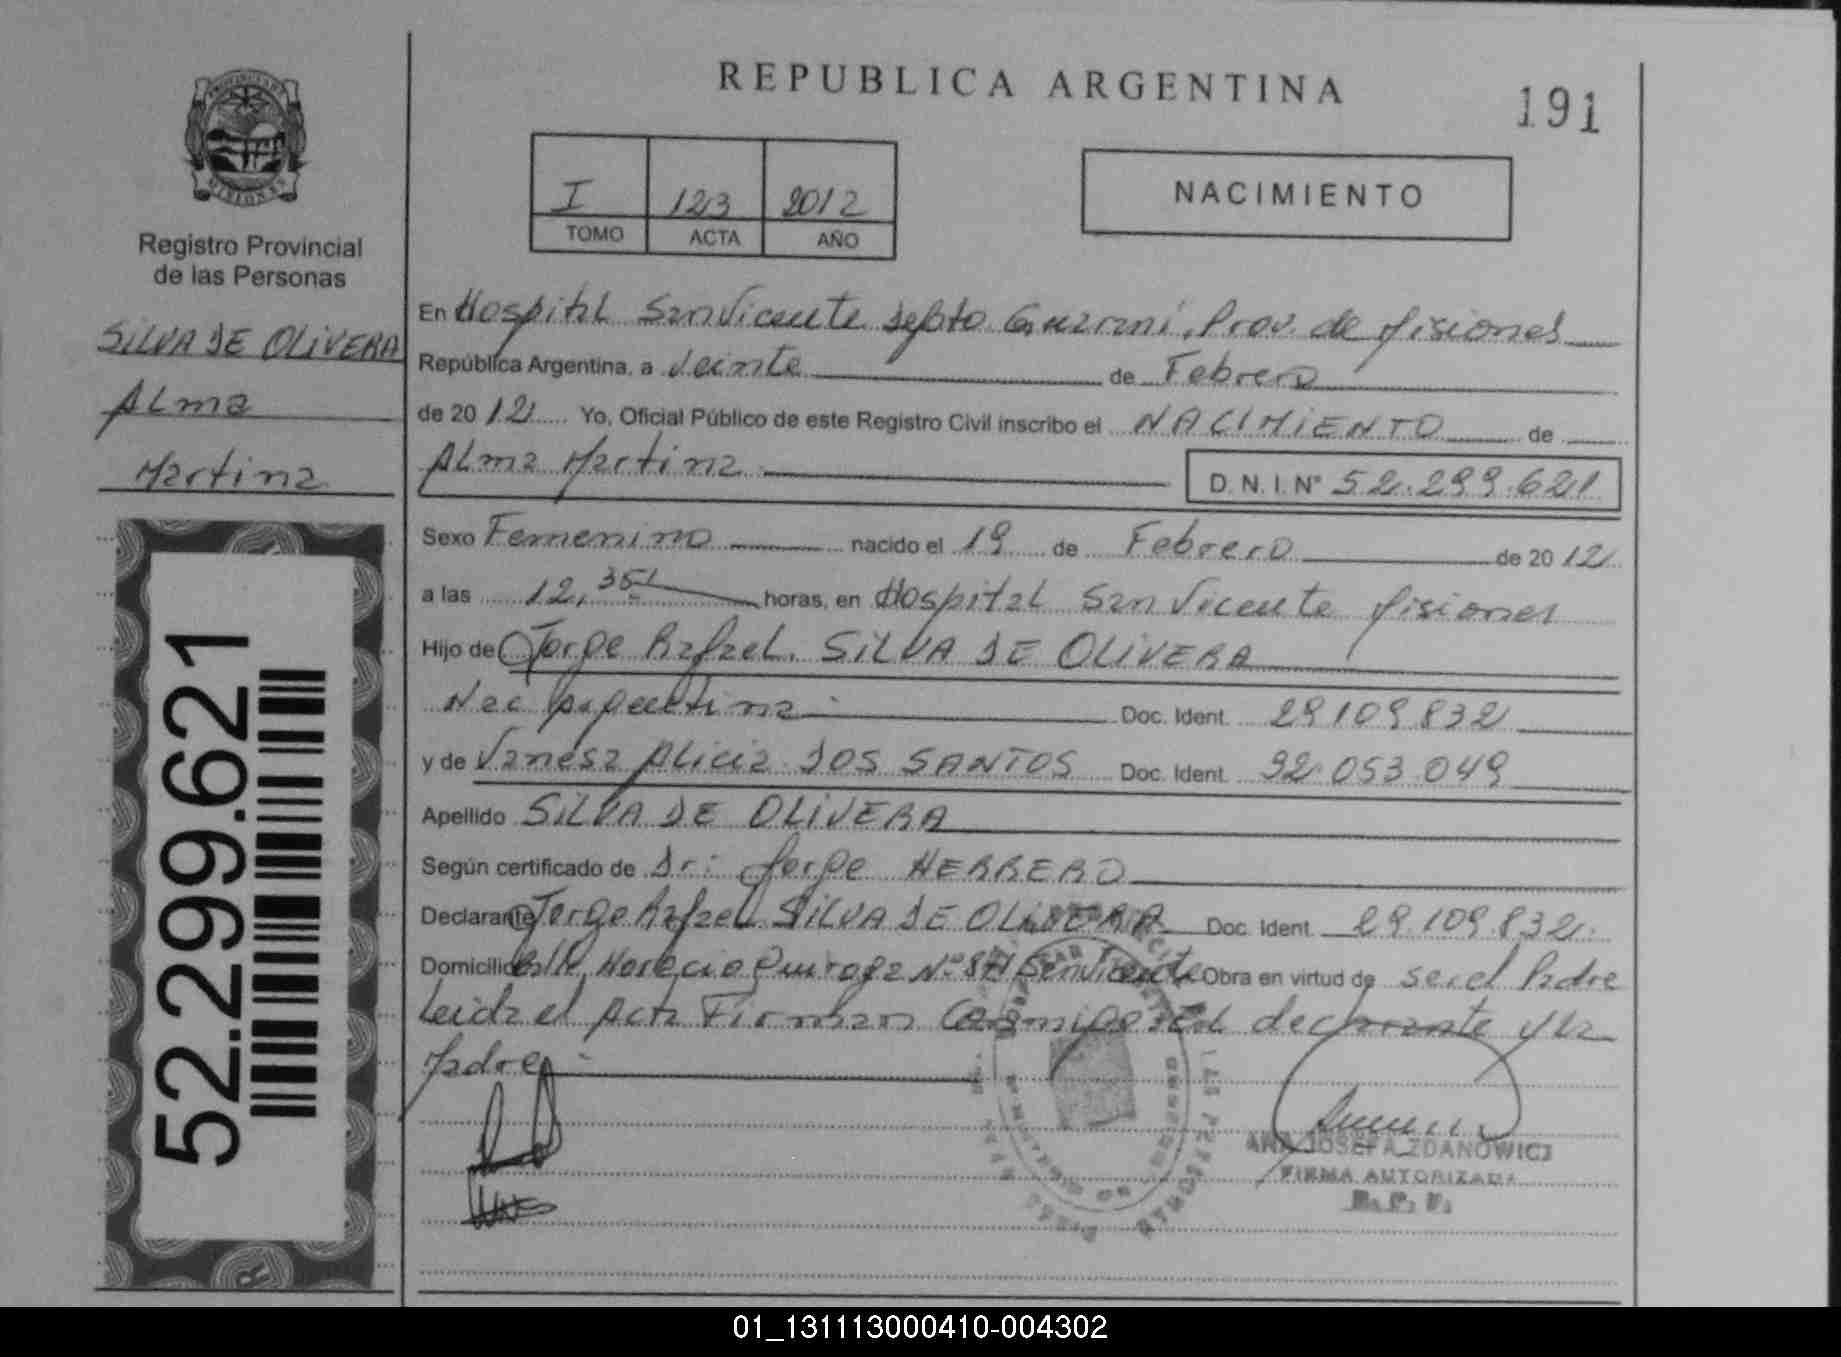 REPUBLICA ARGENTINA
191
I 123 2012
TOMO ACTA AÑO
NACIMIENTO
PROVINCIA DE MISIONES
Registro Provincial
de las Personas
SILVA DE OLIVERA
Alma
Martina
52.299.621
En Hospital San Vicente Depto Guaraní, Prov. de Misiones
República Argentina, a Veinte de Febrero
de 2012 Yo, Oficial Público de este Registro Civil inscribo el NACIMIENTO de
Alma Martina D.N.I. Nº 52.299.621
Sexo Femenino nacido el 19 de Febrero de 2012
a las 12,35 horas, en Hospital San Vicente Misiones
Hijo de Jorge Rafael. SILVA DE OLIVERA
Nac Argentina Doc. Ident. 29.109.832
y de Vanesa Alicia DOS SANTOS Doc. Ident. 92.053.049
Apellido SILVA DE OLIVERA
Según certificado de Dr: Jorge HERRERO
Declarante Jorge Rafael SILVA DE OLIVERA Doc. Ident. 29.109.832
Domicilio Horacio Quiroga Nº San Vicente Obra en virtud de ser el Padre
Leida el Acta Firman Conmigo El declarante y la
Madre
ANA JOSEFA ZDANOWICZ
FIRMA AUTORIZADA
01_131113000410-004302